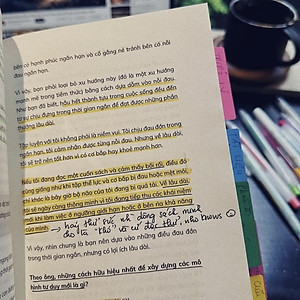 bên có hạnh phúc ngắn hạn và cố gắng né tránh bên có nỗi
đau ngắn hạn.
Vì vậy, bạn phải loại bỏ xu hướng này (đó là một xu hướng
mạnh mẽ trong tiềm thức) bằng cách dựa dẫm vào nỗi đau.
Như bạn đã biết, hầu hết thành tựu trong cuộc sống đều đến
từ sự chịu đựng trong thời gian ngắn để đạt được những phần
thưởng lâu dài.
Tập luyện với tôi không phải là niềm vui. Tôi chịu đau đớn trong
ngắn hạn, tôi cảm nhận được từng nỗi đau. Nhưng về lâu dài,
tôi sẽ trở nên tốt hơn vì có cơ bắp hay khoẻ mạnh hơn.
Nếu tôi đang đọc một cuốn sách và cảm thấy bối rối, điều đó
cũng giống như khi tập thể lực và cơ bắp bị đau hoặc mệt mỏi,
chỉ khác là bây giờ bộ não của tôi đang bị quá tải. Về lâu dài,
tôi sẽ ngày càng thông minh vì tôi đang tiếp thu các khái niệm
mới khi làm việc ở ngưỡng giới hạn hoặc ở bên rìa khả năng
của mình.
→ hãy thử sức với dòng sách mình
cho là "khó", và cứ đọc thử, who knows
Vì vậy, nhìn chung là bạn nên dựa vào những điều đau đớn
trong thời gian ngắn, nhưng có lợi ích lâu dài.
Theo ông, những cách hữu hiệu nhất để xây dựng các mô
hình tư duy mới là gì?